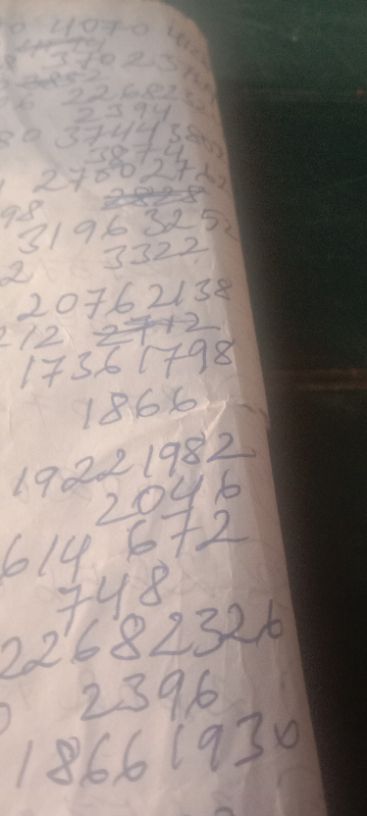 4070
3702
2268232
2394
80 37443805
3874
27502762
2828
98
31963252
2 3322
20762138
212 2712
17361798
1866
19221982
2046
614 672
748
22682326
2396
18661930